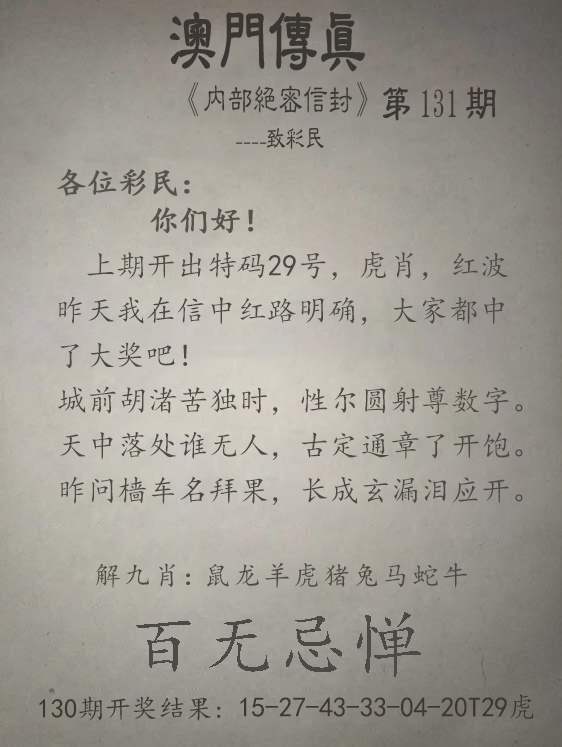 澳門傳眞
《内部絕密信封》第131期
----致彩民
各位彩民：
你们好！
上期开出特码29号，虎肖，红波
昨天我在信中红路明确，大家都中
了大奖吧！
城前胡渚苦独时，性尔圆射尊数字。
天中落处谁无人，古定通章了开饱。
昨问樯车名拜果，长成玄漏泪应开。
解九肖：鼠龙羊虎猪兔马蛇牛
百无忌惮
130期开奖结果：15-27-43-33-04-20T29虎